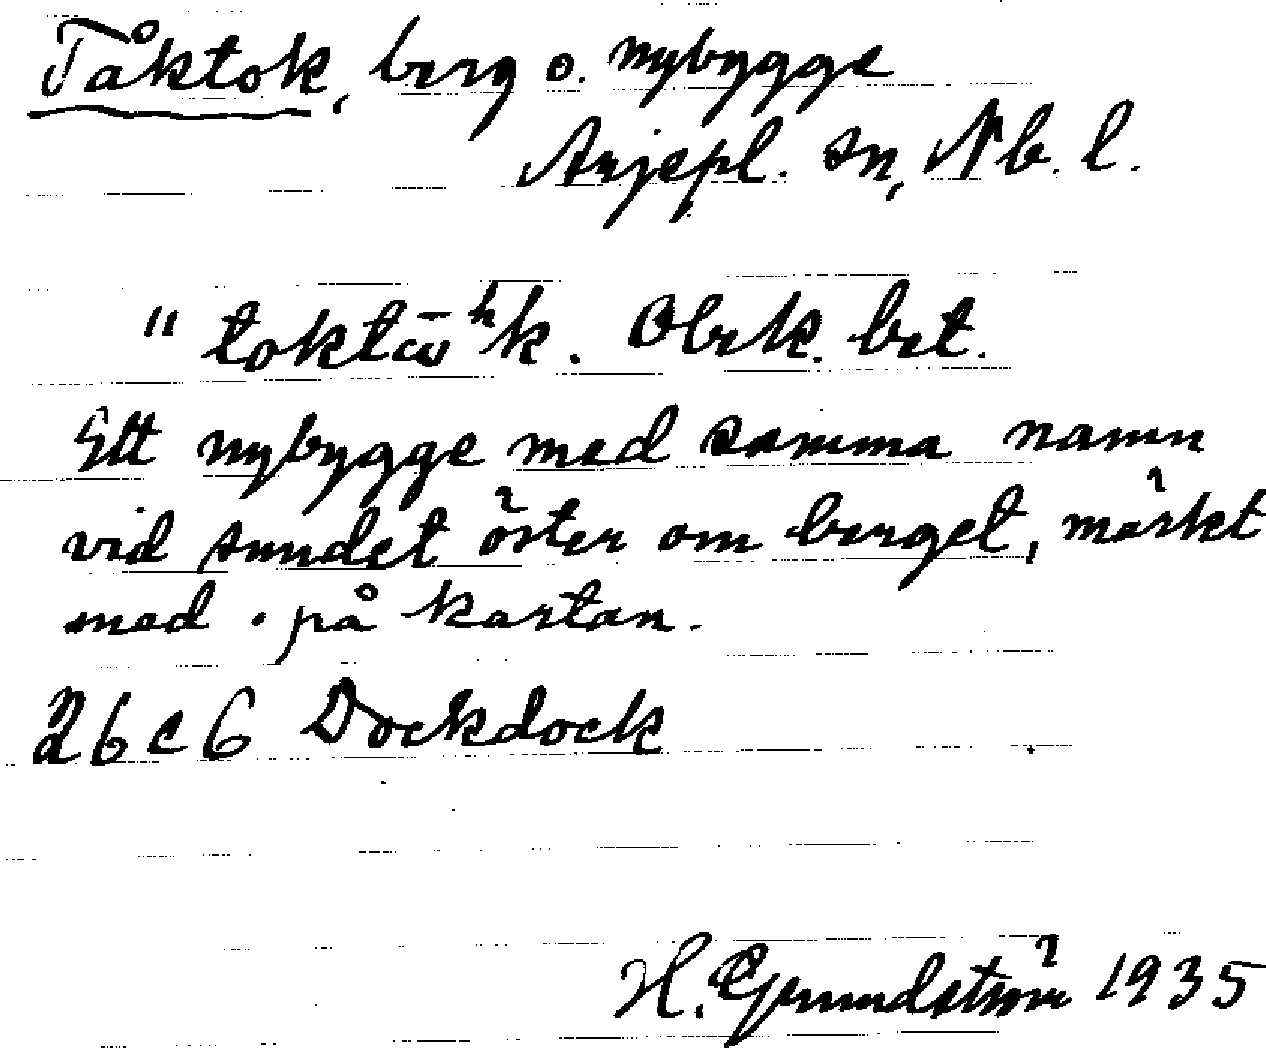 Tåktok, berg o. nybygge
Arjepl. sn, Nb. l.
" toktā̮ʰk. Obek. bet.
Ett nybygge med samma namn
vid sundet öster om berget, märkt
med . på kartan.
26 c 6 Dockdock
H. Grundström 1935